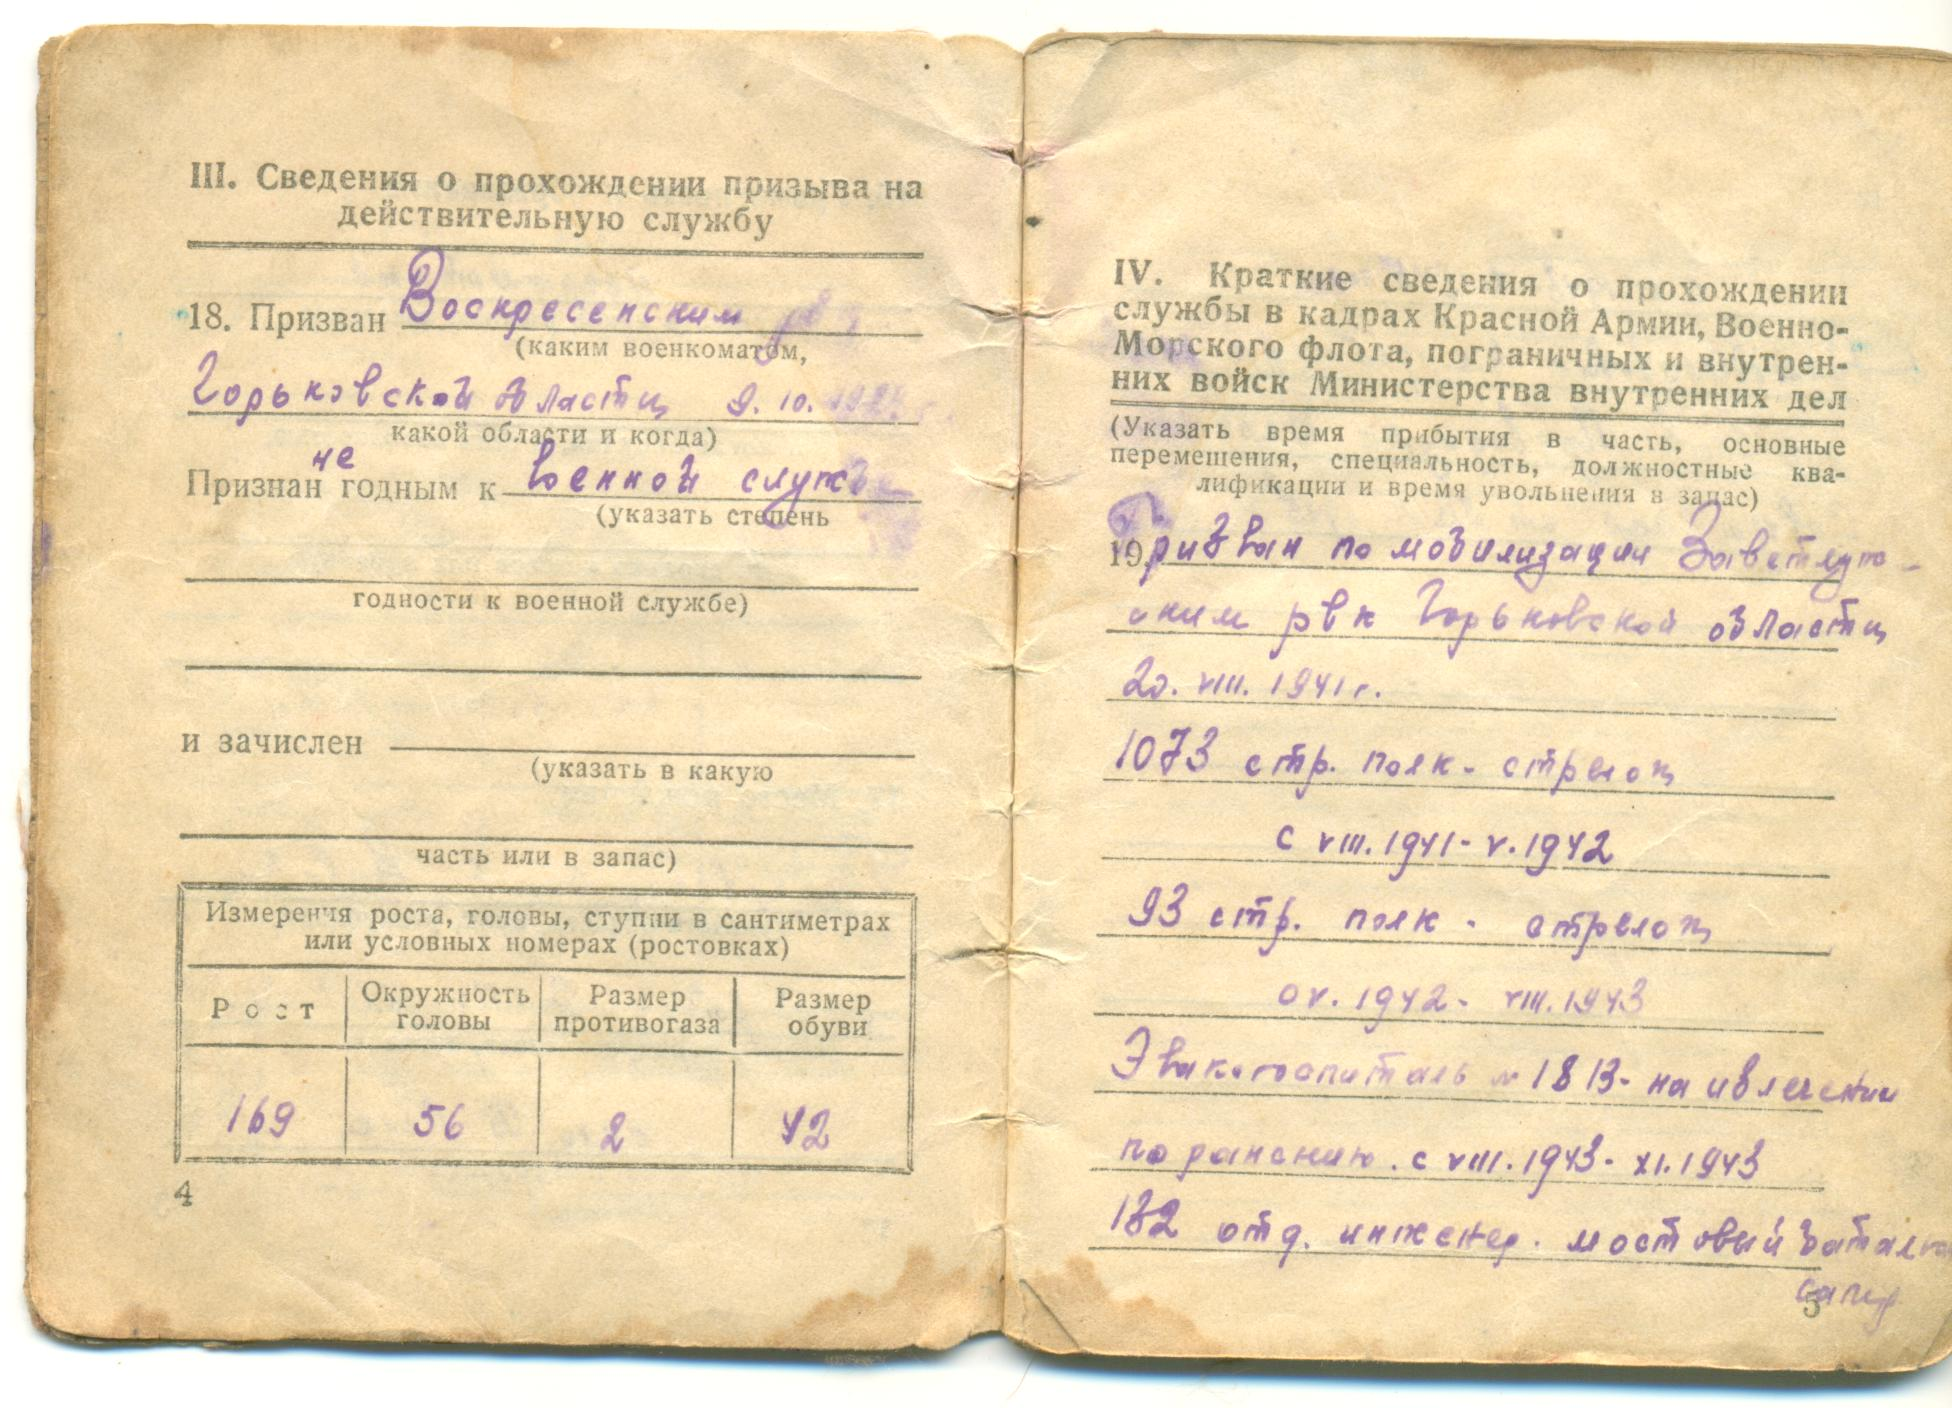 III. Сведения о прохождении призыва на
действительную службу
18. Призван Воскресенским
(каким военкоматом,
Горьковской области 9. 10.
какой области и когда)
не
Признан годным к военной службе
(указать степень
годности к военной службе)
и зачислен
(указать в какую
часть или в запас)
Измерения роста, головы, ступни в сантиметрах
или условных номерах (ростовках)
Рост Окружность головы Размер противогаза Размер обуви
169 56 2 42
4
IV. Краткие сведения о прохождении
службы в кадрах Красной Армии, Военно-
Морского флота, пограничных и внутрен-
них войск Министерства внутренних дел
(Указать время прибытия в часть, основные
перемещения, специальность, должностные ква-
лификации и время увольнения в запас)
19. Призван по мобилизации Заветлуж-
ским рвк Горьковской области
20. VIII. 1941 г.
1073 стр. полк - стрелок
с VIII. 1941 - V. 1942
93 стр. полк - стрелок
с V. 1942 - VIII. 1943
Эвакогоспиталь № 1813 - на излечении
по ранению. с VIII. 1943 - XI. 1943
182 отд. инженер. мостовый батальон
сапер
5